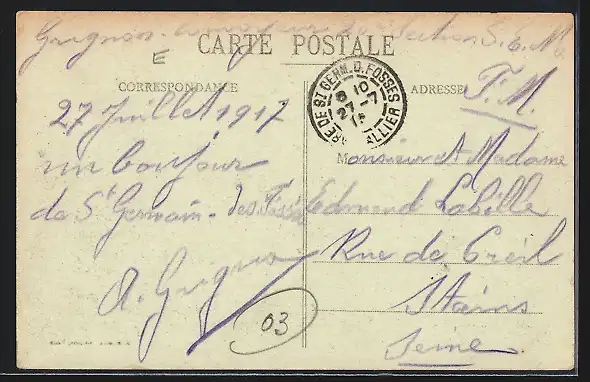 Grignon
S. E. M.
E
CARTE POSTALE
CORRESPONDANCE
ADRESSE
F. M.
GARE DE ST GERM. D. FOSSES
8 10
27-7
17
ALLIER
27 Juillet 1917
un bonjour
de St Germain-des-Fossés
A. Grignon
Monsieur et Madame
Edmond Labille
Rue de Creil
Stains
Seine
03